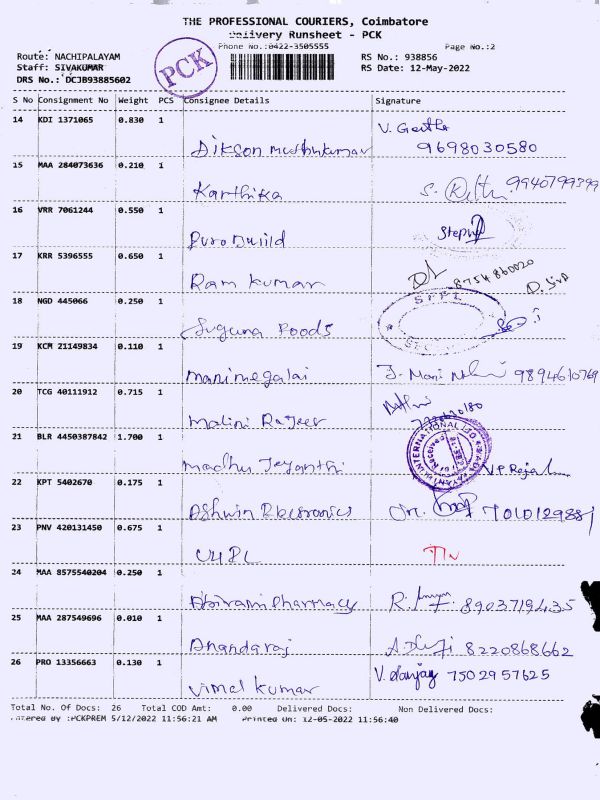 THE PROFESSIONAL COURIERS, Coimbatore
Delivery Runsheet - PCK
Phone No.:0422-3505555
Page No.:2
Route: NACHIPALAYAM
RS No.: 938856
Staff: SIVAKUMAR
RS Date: 12-May-2022
DRS No.: DCJB93885602
PCK
S No Consignment No Weight PCS Consignee Details Signature
14 KDI 1371065 0.830 1
V. Geetha
Dikson muthukumar 9698030580
15 MAA 284073636 0.210 1
Karthika
16 VRR 7061244 0.550 1
Puro Build Stephy
17 KRR 5396555 0.650 1
Ram kumar 8754860020
18 NGD 445066 0.250 1
SFPL
Suguna Foods
19 KCM 21149834 0.110 1
manimegalai J. Mani 9894610769
20 TCG 40111912 0.715 1
Malini Rajeev
21 BLR 4450387842 1.700 1
INTERNATIONAL
Madhu Jeyanthi
22 KPT 5402670 0.175 1
Ashwin Electronics
23 PNV 420131450 0.675 1
24 MAA 8575540204 0.250 1
Abirami Pharmacy 8903719435
25 MAA 287549696 0.010 1
Dhandaraj 8220868662
26 PRO 13356663 0.130 1
V. Sanjay 7502957625
Vimal kumar
Total No. Of Docs: 26 Total COD Amt: 0.00 Delivered Docs: Non Delivered Docs:
Entered By :PCKPREM 5/12/2022 11:56:21 AM Printed On: 12-05-2022 11:56:40